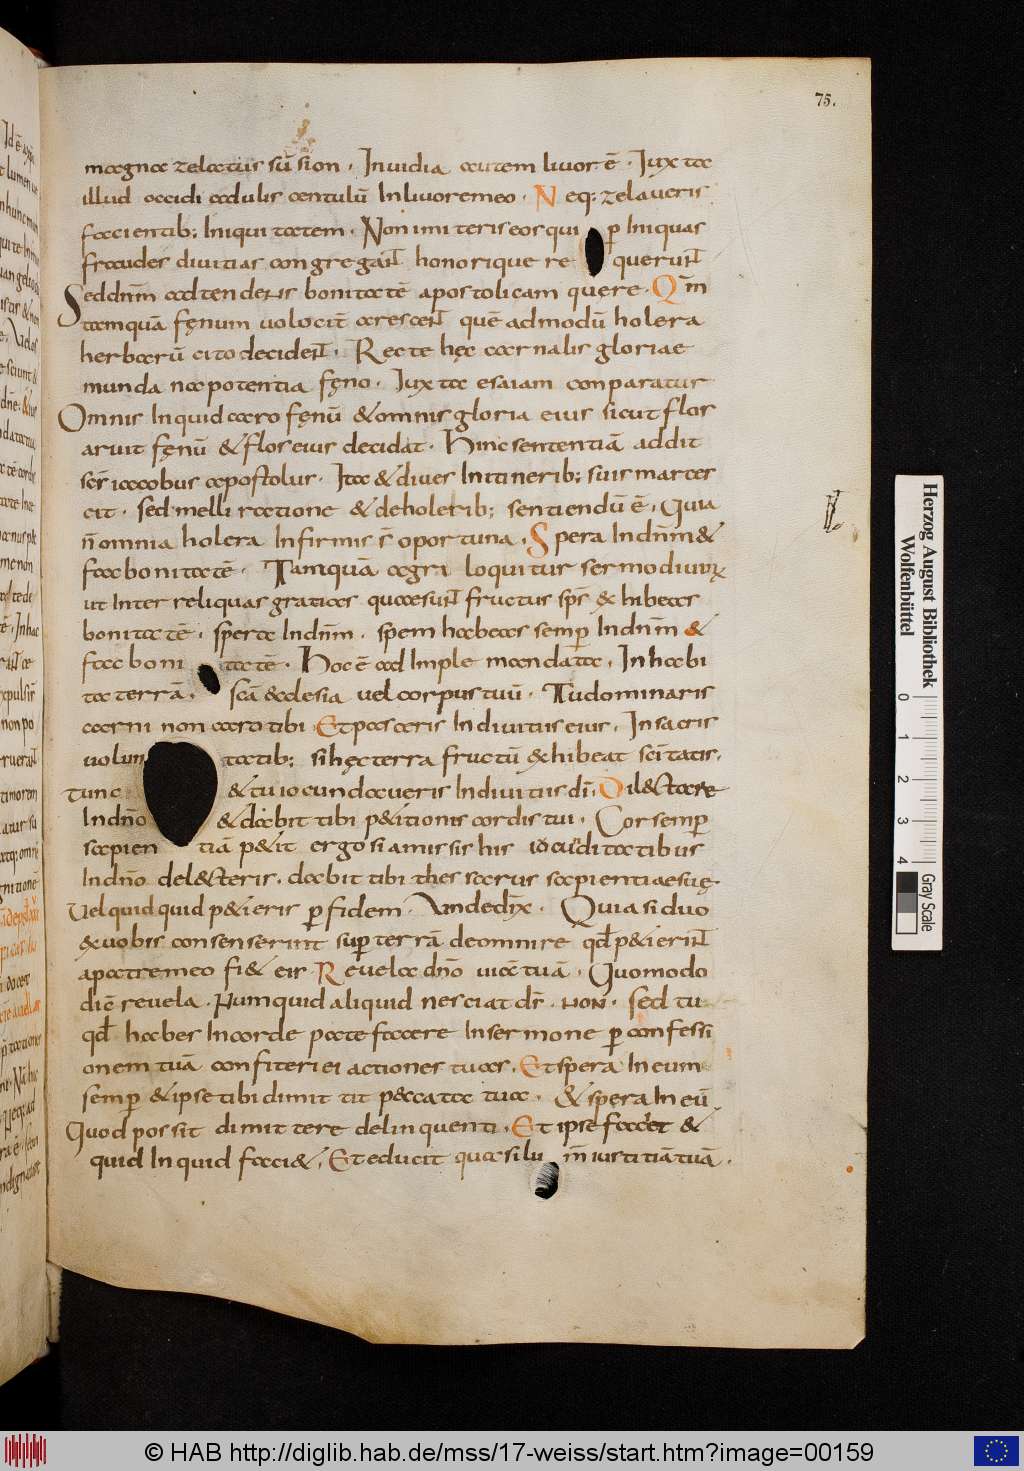 75.
magna zelatus sū sion . Inuidia autem liuor ē . Iuxta
illud occidi adulis centulū In liuore meo . Neq: zelaueris
facientib; Iniquitatem . Non imiteris eos qui p Iniquas
fraudes diuitias congregan̄t honorique re querun̄t
Sed dn̄m adtenderis bonitatē apostolicam quęre . Qm̄
tamquā fęnum uolocit̄ arescen̄t quē admodū holera
herbarū cito deciden̄t . Recte hęc carnalis gloriae
munda na potentia fęno . Iuxta esaiam conparatur
Omnis Inquid caro fęnū & omnis gloria eius sicut flos
aruit fęnū & flos eius decidat . Hinc sententiā addit
sēr iacobus apostolus . Ita & diues In itinerib; suis marces
cit . sed melli ratione & de holerib; sentiendū ē . Quia
n̄ omnia holera Infirmis s̄ oportuna . Spera In dn̄m &
fac bonitatē . Tamquā agri loquitur sermo diuin
ut Inter reliquas gratias quae sun̄t fructus sp̄s exhibeas
bonitatē . spera In dn̄m . spem habeas semp̄ In dn̄m &
fac boni tatē . Hoc ē ad Imple mandata . Inhabi
ta terrā . scā ecclesia uel corpus tuū . Tu dominaris
carni non caro tibi . Et pasceris In diuitiis eius . In sacris
uolun tatib; si hęc terra fructū exhibeat sc̄itatis .
tunc & tu iocundaueris In diuitiis dī . Dilectare
In dn̄o & dabit tibi petitionis cordis tui . Cor semp̄
sapien tiā petit ergo si amis sis his iocūditatibus
In dn̄o delecteris . dabit tibi thesaurus sapientiae suę .
Uel quid quid petieris p fidem . Unde dx̄ . Quia si duo
ex uobis consenserint sup terrā de omni re qd̄ petierin̄t
a patre meo fiet eis . Reuela dn̄o uiā tuā . Quomodo
diē reuela . Numquid aliquid nesciat d̄s . non . sed tu
qd̄ habes In corde patefacere In sermone p confessi
onem tuā confiteri ei actiones tuas . Et spera In eum
semp̄ & ipse tibi dimit tit peccata tua . & spera In eū
Quod possit dimittere delinquenti . Et ipse faciet &
quid Inquid faciet . Et educit quasi lu m̄ iustitiā tuā .
Herzog August Bibliothek
Wolfenbüttel
0 1 2 3 4
Gray Scale
© HAB http://diglib.hab.de/mss/17-weiss/start.htm?image=00159